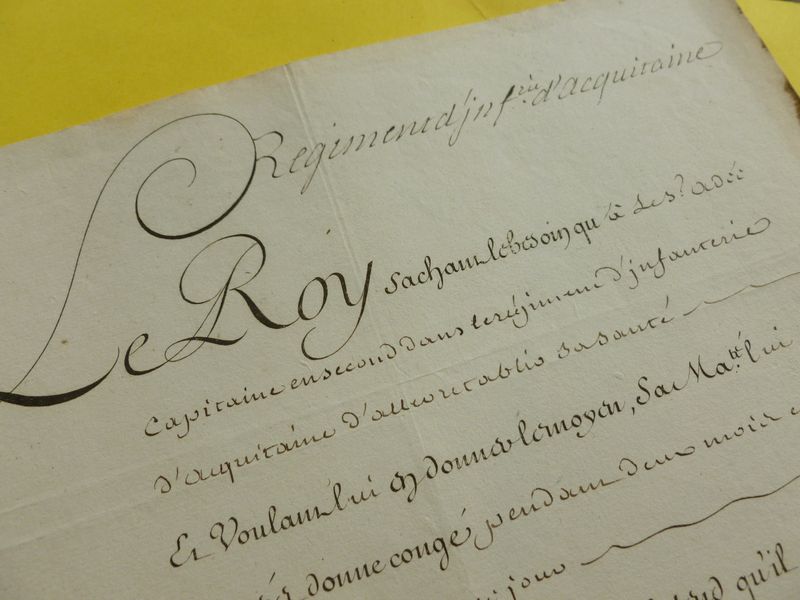 Regiment d'inf.rie d'acquitaine
Le Roy sachant le besoin qu'à le s.r adée
capitaine en second dans le régiment d'infanterie
d'acquitaine d'aller retablir sa santé
Et Voulant lui en donner le moyen, Sa Ma.té lui
donne congé pendant deux mois
jour
qu'il